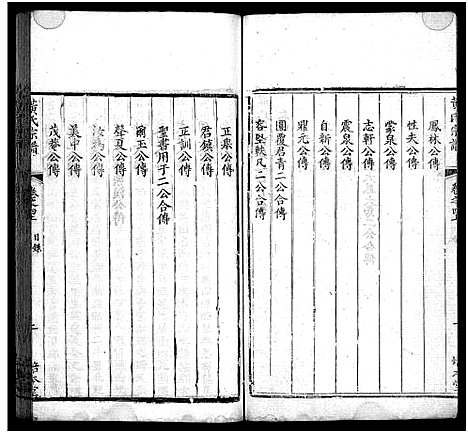 黄氏宗譜
卷之四
鳳林公傳
性夫公傳
蒙泉公傳
志軒公傳
震泉公傳
自新公傳
耀元公傳
圓覆及青二公合傳
客堅執凡二公合傳
正乘公傳
君鎮公傳
正訓公傳
聖書用予二公合傳
爾玉公傳
聲夏公傳
汝為公傳
美中公傳
茂菴公傳
黄氏宗譜
卷之四
目錄
二